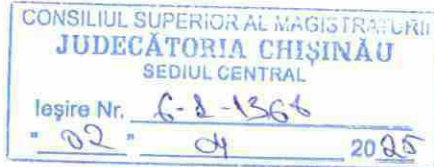 CONSILIUL SUPERIOR AL MAGISTRATURII
JUDECĂTORIA CHIȘINĂU
SEDIUL CENTRAL
Ieșire Nr. 6-2-1366
" 02 " 04 2025